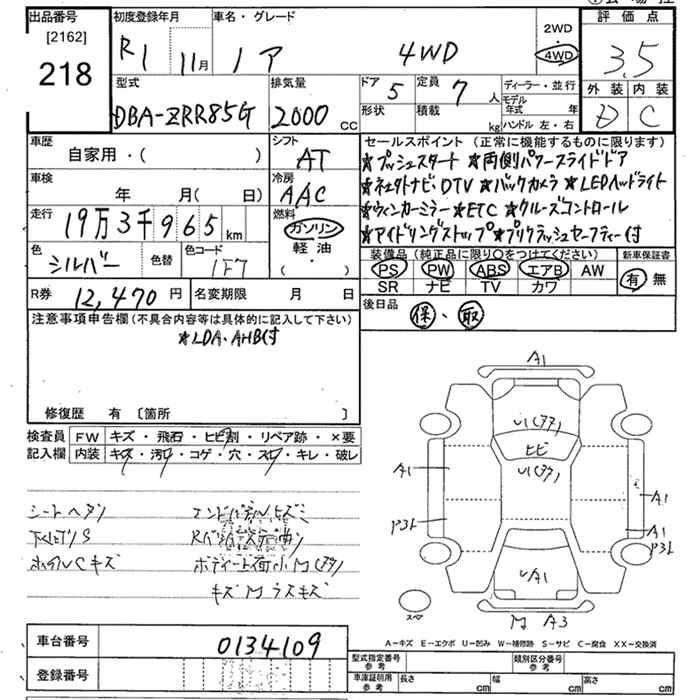 出品番号 [2162] 218
初度登録年月 R1 11月
車名・グレード ノア 4WD
2WD・4WD
評価点 3.5
外装 D 内装 C
型式 DBA-ZRR85G
排気量 2000 CC
ドア 5 定員 7人
形状 積載 kg
ディーラー・並行
モデル年式 年
ハンドル 左・右
車歴 自家用・( )
シフト AT
車検 年 月( 日)
冷房 AAC
走行 19万3千965 km
燃料 ガソリン・軽油・
色 シルバー 色替 色コード 1F7
セールスポイント(正常に機能するものに限ります)
★プッシュスタート ★両側パワースライドドア
★ネェタナビ・DTV ★バックカメラ ★LEDヘッドライト
★ウィンカーミラー ★ETC ★クルーズコントロール
★アイドリングストップ ★プリクラッシュセーフティー付
装備品(純正品に限り〇をつけてください) 新車保証書
PS PW ABS エアB AW 有・無
SR ナビ TV カワ
R券 12,470円 名変期限 月 日
後日品 保・取
注意事項申告欄(不具合内容等は具体的に記入して下さい)
★LDA・AHB付
修復歴 有 [箇所 ]
検査員 FW キズ・飛石・ヒビ割・リペア跡・×要
記入欄 内装 キズ・汚れ・コゲ・穴・スレ・キレ・破レ
シートヘタリ
下廻りS
ホイルCキズ
ボディー上面小凹(アタ)
キズ凹ラスキズ
A1
U1(アタ)
ヒビ
U1(アタ)
A1
A1
P31
A1
P31
A1
凹 A3
スペア
A-キズ E-エクボ U-凹み W-補修跡 S-サビ C-腐食 XX-交換済
車台番号 0134109
登録番号
型式指定番号 参考 類別区分番号 参考
車庫証明用 参考 長さ cm 幅 cm 高さ cm